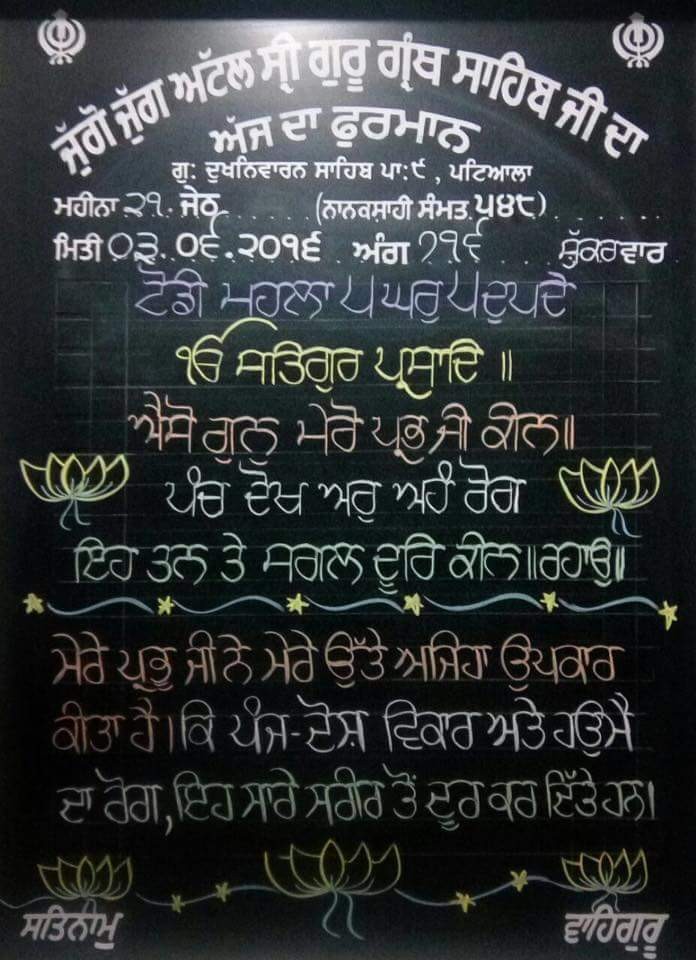 ਜੁੱਗੋ ਜੁੱਗ ਅਟੱਲ ਸ੍ਰੀ ਗੁਰੂ ਗ੍ਰੰਥ ਸਾਹਿਬ ਜੀ ਦਾ
ਅੱਜ ਦਾ ਫੁਰਮਾਨ
ਗੁ: ਦੁਖਨਿਵਾਰਨ ਸਾਹਿਬ ਪਾ:੯ , ਪਟਿਆਲਾ
ਮਹੀਨਾ ੨੧. ਜੇਠ (ਨਾਨਕਸਾਹੀ ਸੰਮਤ ੫੪੮)
ਮਿਤੀ ੦੩.੦੬.੨੦੧੬ ਅੰਗ ੭੧੬ ਸ਼ੁੱਕਰਵਾਰ
ਟੋਡੀ ਮਹਲਾ ੫ ਘਰੁ ੫ ਦੁਪਦੇ
ੴ ਸਤਿਗੁਰ ਪ੍ਰਸਾਦਿ ॥
ਐਸੋ ਗੁਨੁ ਮੇਰੋ ਪ੍ਰਭ ਜੀ ਕੀਨ॥
ਪੰਚ ਦੋਖ ਅਰੁ ਅਹੰ ਰੋਗ
ਇਹ ਤਨ ਤੇ ਸਗਲ ਦੂਰਿ ਕੀਨ॥ਰਹਾਉ॥
ਮੇਰੇ ਪ੍ਰਭੂ ਜੀ ਨੇ ਮੇਰੇ ਉੱਤੇ ਅਜਿਹਾ ਉਪਕਾਰ
ਕੀਤਾ ਹੈ। ਕਿ ਪੰਜ-ਦੋਸ਼ ਵਿਕਾਰ ਅਤੇ ਹਉਮੈ
ਦਾ ਰੋਗ, ਇਹ ਸਾਰੇ ਸਰੀਰ ਤੋਂ ਦੂਰ ਕਰ ਦਿੱਤੇ ਹਨ।
ਸਤਿਨਾਮੁ ਵਾਹਿਗੁਰੂ